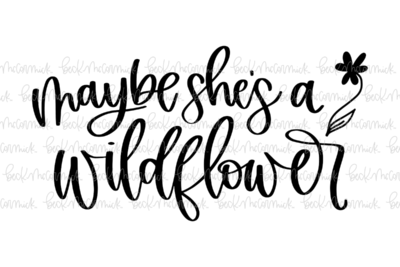 maybe she's a
wildflower